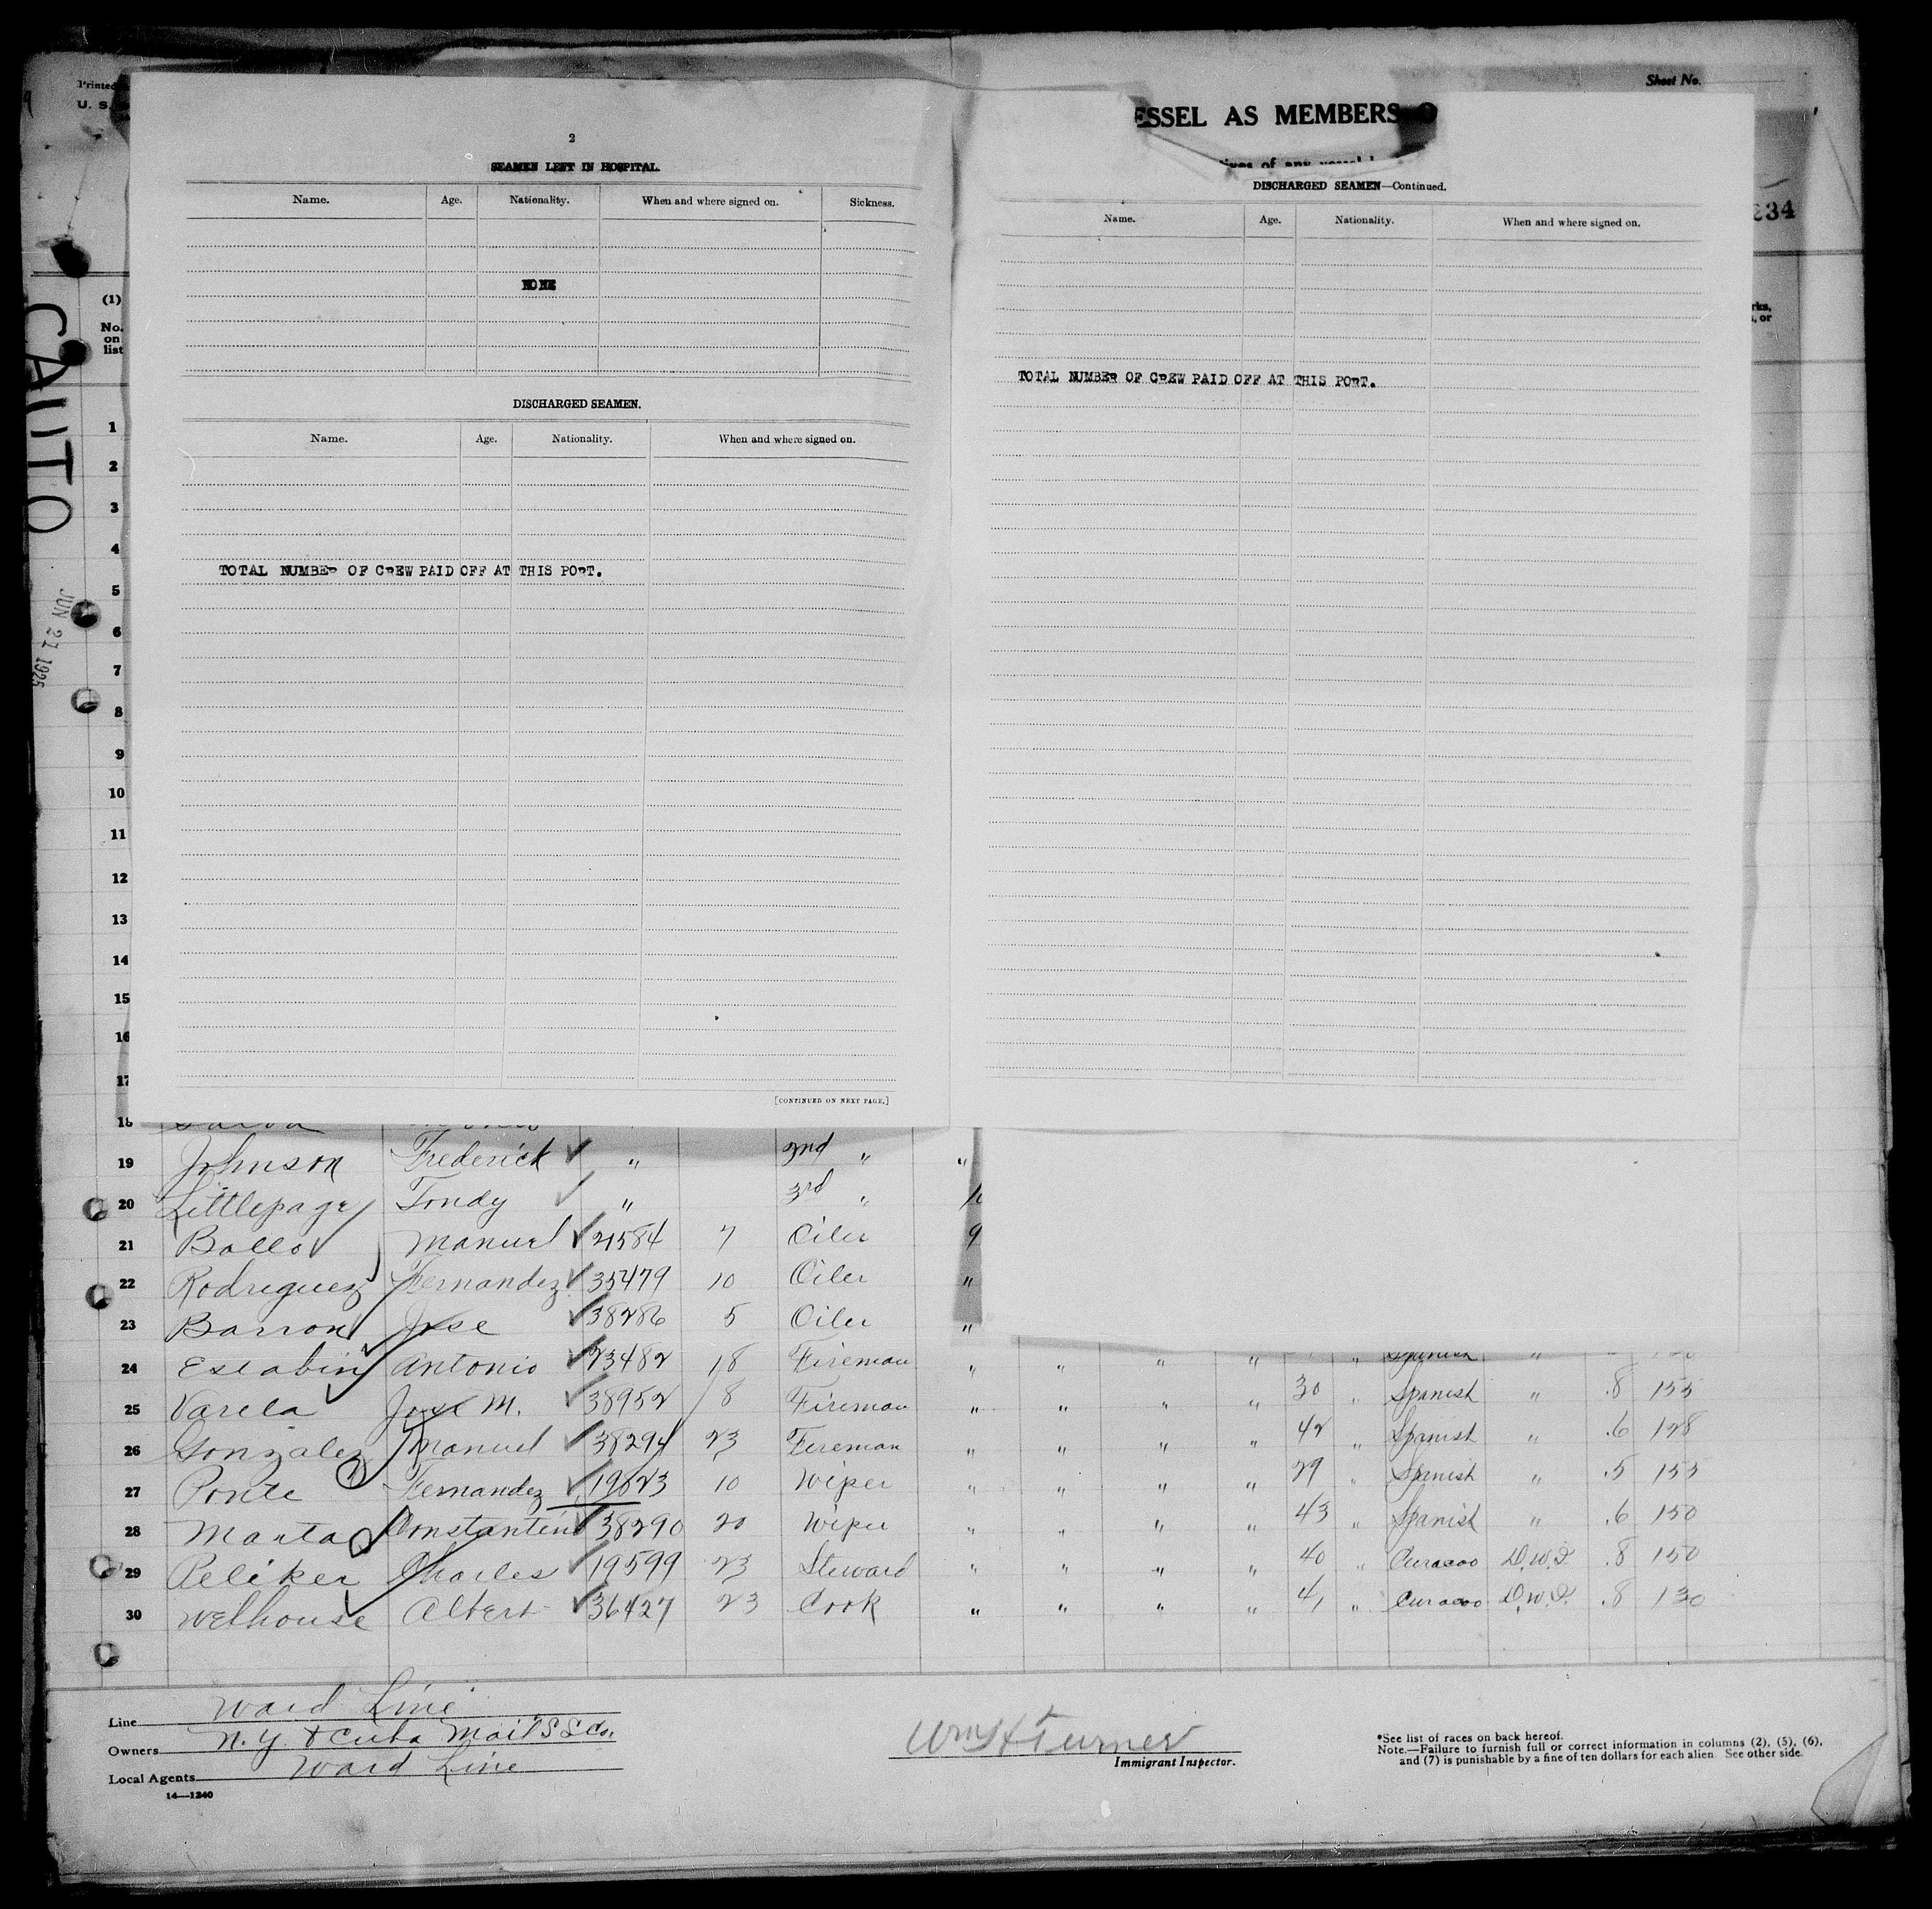 Printed
U. S.
Sheet No.
ESSEL AS MEMBERS O
tives of any vessel
234
2
SEAMEN LEFT IN HOSPITAL.
Name. Age. Nationality. When and where signed on. Sickness.
NONE
DISCHARGED SEAMEN.
Name. Age. Nationality. When and where signed on.
TOTAL NUMBER OF CREW PAID OFF AT THIS PORT.
[CONTINUED ON NEXT PAGE.]
DISCHARGED SEAMEN—Continued.
Name. Age. Nationality. When and where signed on.
TOTAL NUMBER OF CREW PAID OFF AT THIS PORT.
rks,
, or
CAUTO
JUN 21 1925
(1)
No.
on
list
1
2
3
4
5
6
7
8
9
10
11
12
13
14
15
16
17
18
19 Johnson Frederick " 2nd " "
20 Littlepage Tondy " 3rd "
21 Bollo Manuel 21584 7 Oiler 9
22 Rodriguez Fernandez 35479 10 Oiler "
23 Barron Jose 38286 5 Oiler "
24 Eseabin Antonio 23482 18 Fireman " " " " " Spanish "
25 Varela Jose M. 38952 8 Fireman " " " " 30 " Spanish " .8 155
26 Gonzalez Manuel 38294 23 Fireman " " " " 42 " Spanish " .6 128
27 Ponte Fernandez 19023 10 Wiper " " " " 29 " Spanish " .5 155
28 Manta Constantin 38290 20 Wiper " " " " 43 " Spanish " .6 150
29 Peliker Charles 19599 23 Steward " " " " 40 " Curacao D.W.I. .8 150
30 Welhouse Albert 36427 23 Cook " " " " 41 " Curacao D.W.I. .8 130
Line Ward Line
Owners N.Y. & Cuba Mail S S Co.
Local Agents Ward Line
14—1240
Wm H Turner
Immigrant Inspector.
*See list of races on back hereof.
Note.—Failure to furnish full or correct information in columns (2), (5), (6),
and (7) is punishable by a fine of ten dollars for each alien See other side.